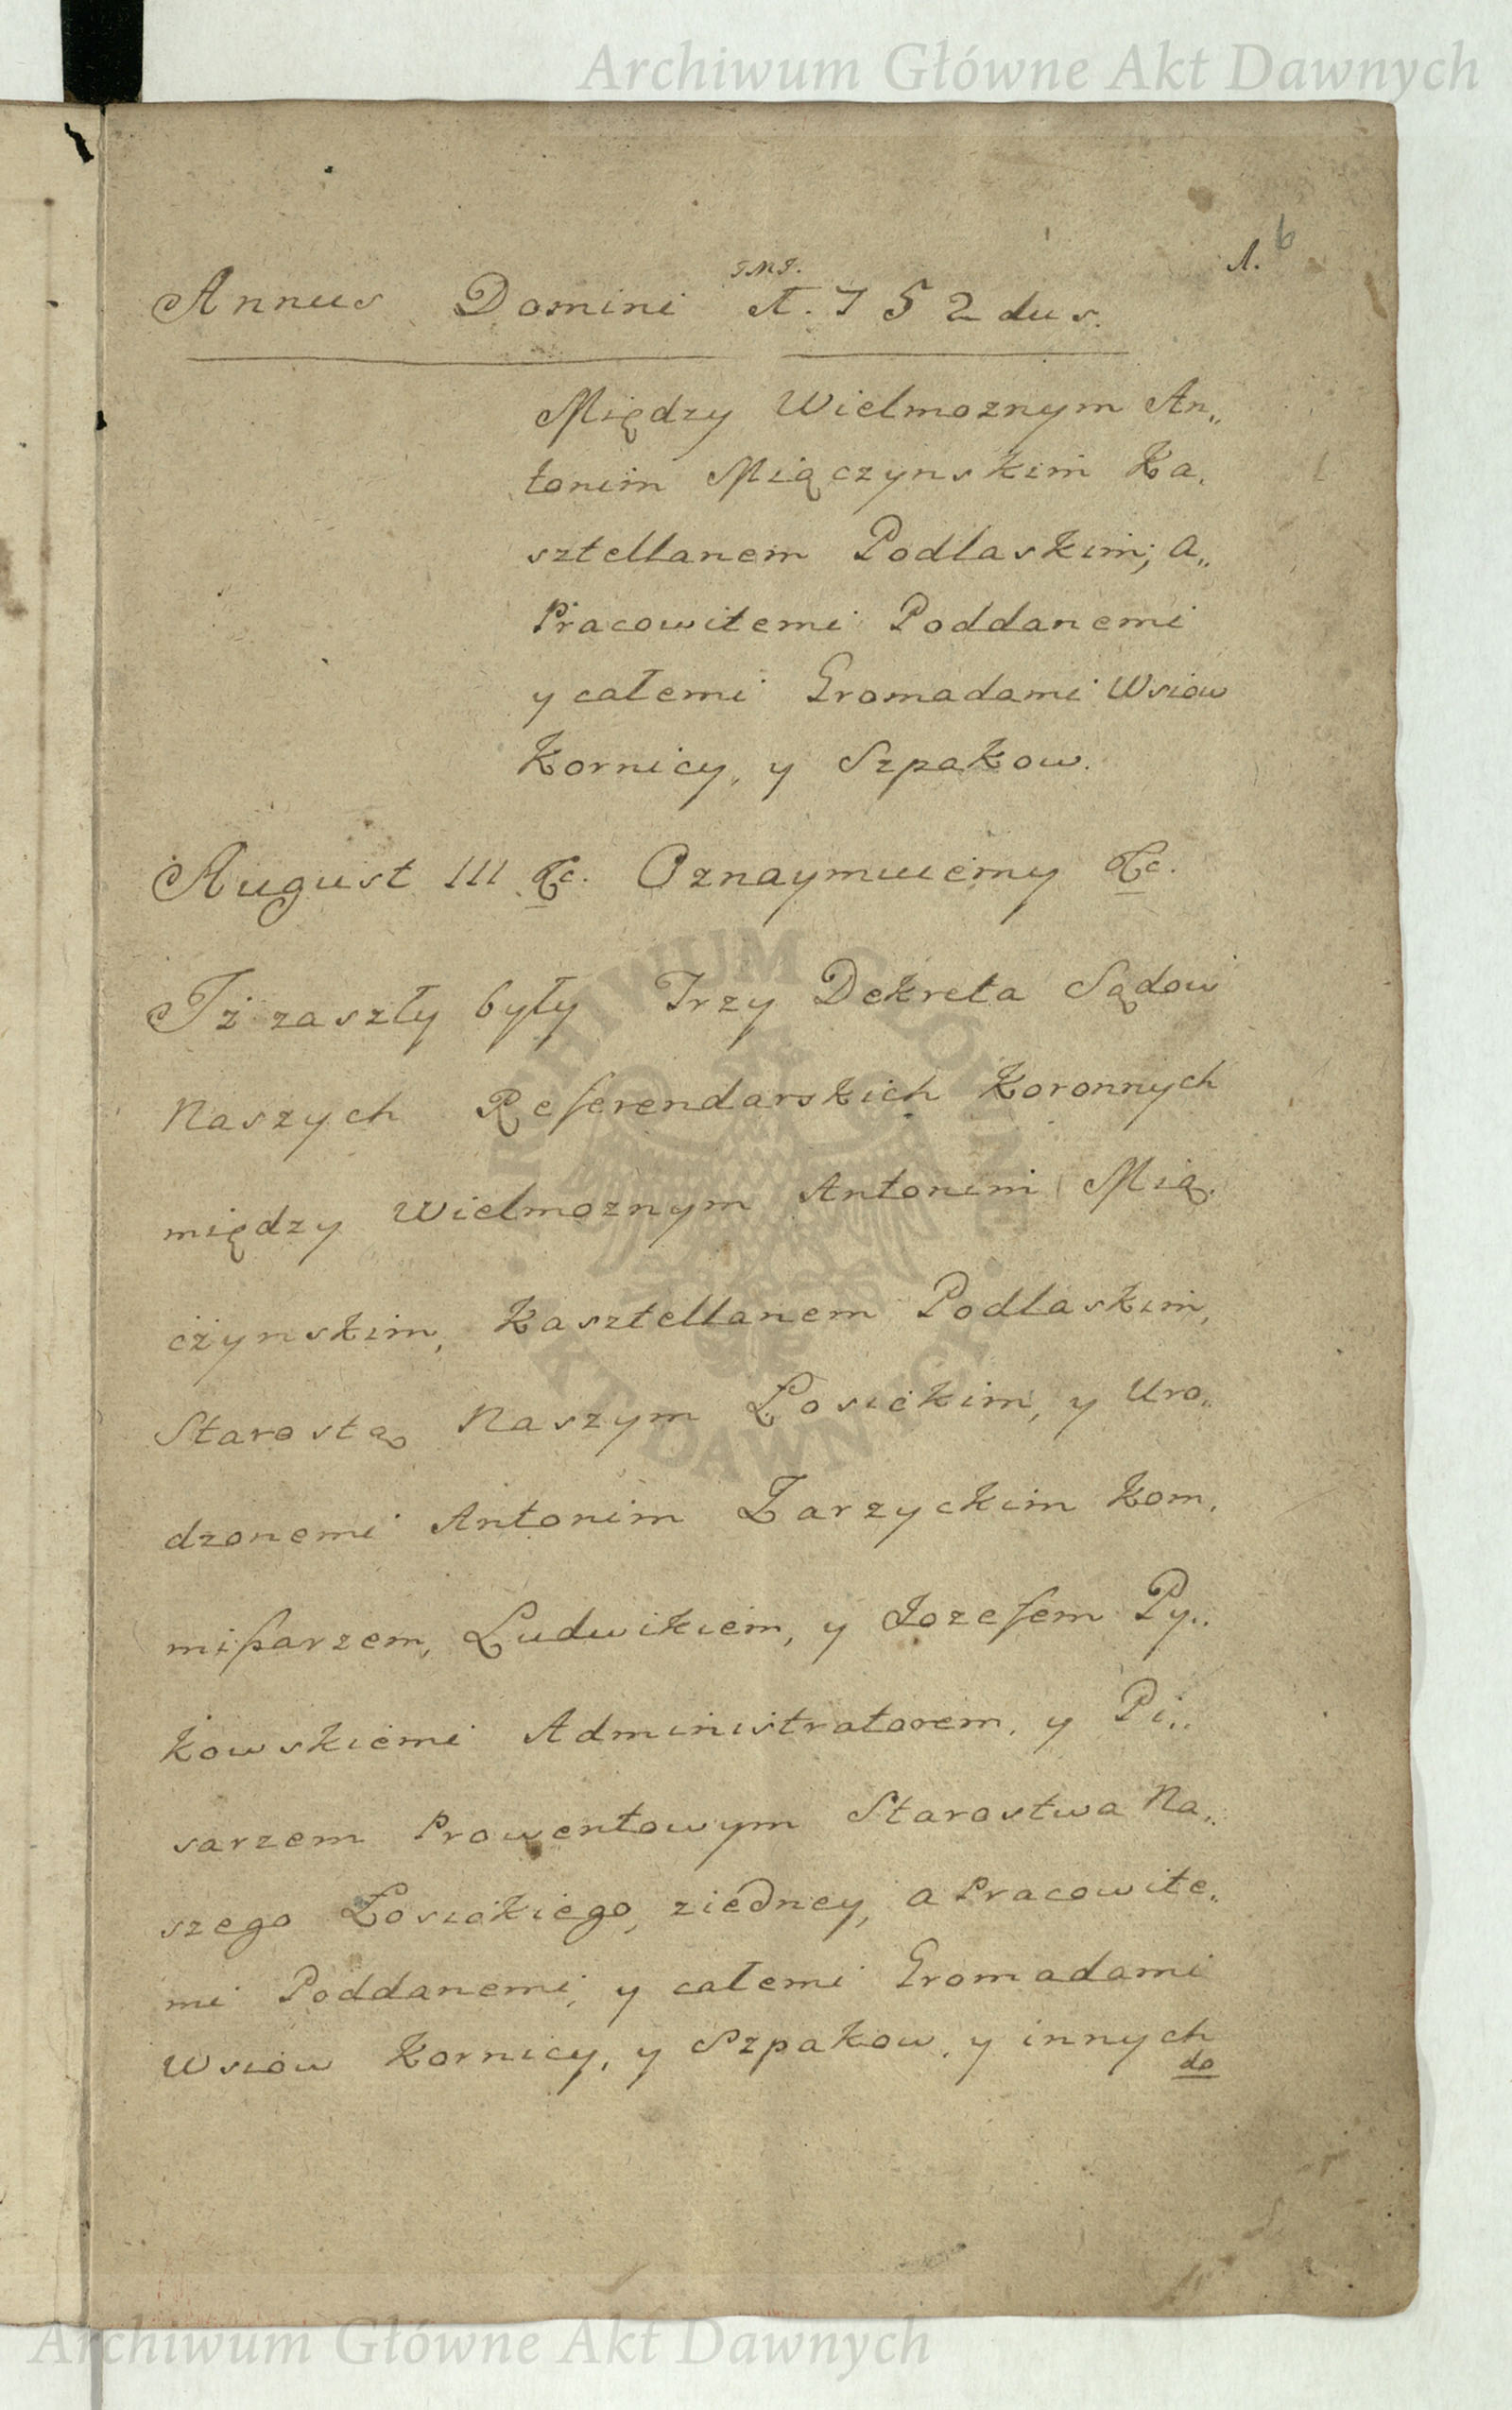 Archiwum Główne Akt Dawnych
1. 6
JMJ.
Annus Domini 1.752dus.
Między Wielmoznym An„
tonim Miączynskim Ka.
sztellanem Podlaskim; a„
Pracowitemi Poddanemi
y całemi Gromadami Wsiow
Kornicy, y Szpakow.
August III &c. Oznaymuiemy &c.
Iż zaszły były Trzy Dekreta Sądow
Naszych Referendarskich Koronnych
między Wielmoznym Antonim Mią.
czynskim, Kasztellanem Podlaskim,
Starostą Naszym Łosickim, y Uro„
dzonemi Antonim Zarzyckim Kom.
mißarzem, Ludwikiem, y Jozefem Py„
kowskiemi Administratorem, y Pi„
sarzem Prowentowym Starostwa Na„
szego Łosickiego, ziedney, a Pracowite„
mi Poddanemi, y całemi Gromadami
Wsiow Kornicy, y Szpakow, y innych
do
ARCHIWUM GŁÓWNE AKT DAWNYCH
Archiwum Główne Akt Dawnych